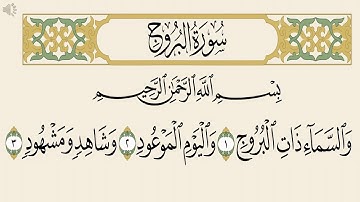 سُورَةُ الْبُرُوجِ
بِسْمِ اللَّهِ الرَّحْمَٰنِ الرَّحِيمِ
وَالسَّمَآءِ ذَاتِ الْبُرُوجِ ١ وَالْيَوْمِ الْمَوْعُودِ ٢ وَشَاهِدٍ وَمَشْهُودٍ ٣